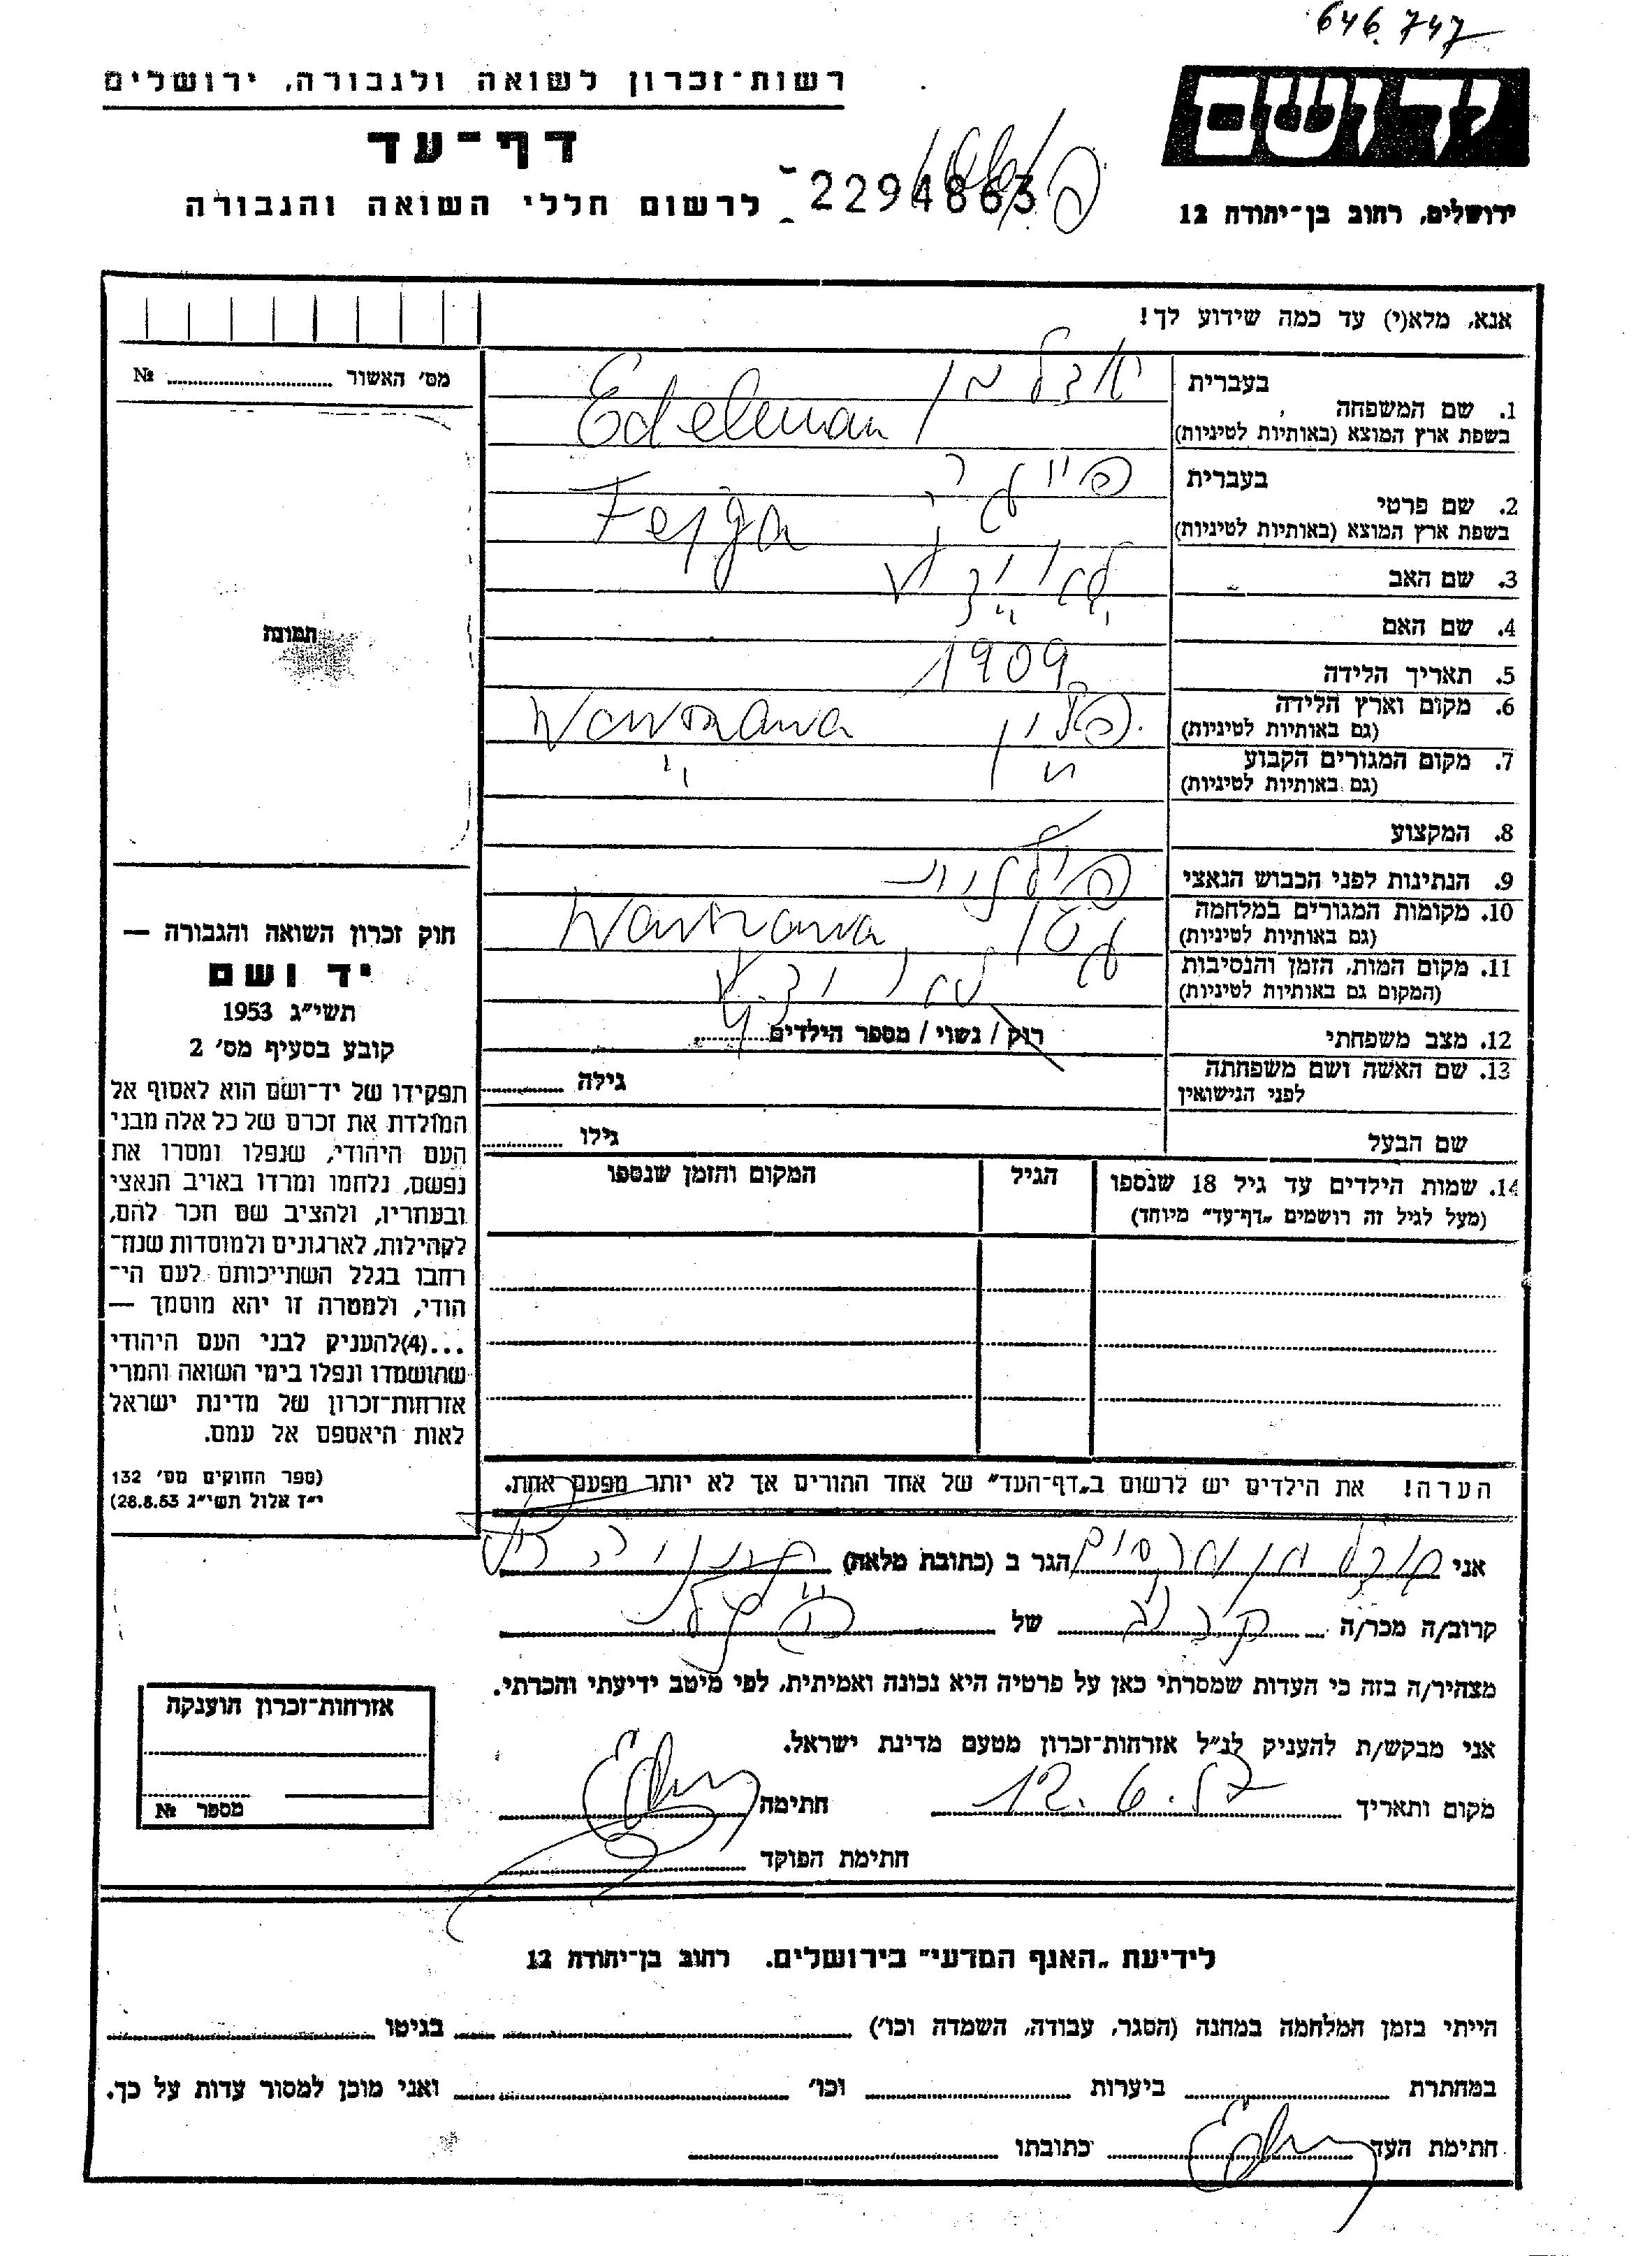 646.747
רשות־זכרון לשואה ולגבורה, ירושלים
יד ושם
דף־עד
2294863
לרשום חללי השואה והגבורה
ירושלים, רחוב בן־יהודה 12
אנא, מלא(י) עד כמה שידוע לך!
מס׳ האשור № ........
תמונה
1. שם המשפחה בעברית
אדלמן
בשפת ארץ המוצא (באותיות לטיניות)
Edelman
2. שם פרטי בעברית
פייגה
בשפת ארץ המוצא (באותיות לטיניות)
Fejga
3. שם האב
4. שם האם
5. תאריך הלידה 1909
6. מקום וארץ הלידה
(גם באותיות לטיניות)
פולין Warszawa
7. מקום המגורים הקבוע
(גם באותיות לטיניות)
״ ״
8. המקצוע
9. הנתינות לפני הכבוש הנאצי
פולנית
10. מקומות המגורים במלחמה
(גם באותיות לטיניות)
גטו Warszawa
11. מקום המות, הזמן והנסיבות
(המקום גם באותיות לטיניות)
12. מצב משפחתי רוק / נשוי / מספר הילדים ........
13. שם האשה ושם משפחתה
לפני הנישואין
גילה ........
שם הבעל גילו ........
14. שמות הילדים עד גיל 18 שנספו
(מעל לגיל זה רושמים „דף־עד״ מיוחד)
הגיל
המקום והזמן שנספו
הערה! את הילדים יש לרשום ב„דף־העד״ של אחד ההורים אך לא יותר מפעם אחת.
חוק זכרון השואה והגבורה —
יד ושם
תשי״ג 1953
קובע בסעיף מס׳ 2
תפקידו של יד־ושם הוא לאסוף אל
המולדת את זכרם של כל אלה מבני
העם היהודי, שנפלו ומסרו את
נפשם, נלחמו ומרדו באויב הנאצי
ובעוזריו, ולהציב שם וזכר להם,
לקהילות, לארגונים ולמוסדות שנח־
רבו בגלל השתייכותם לעם הי־
הודי, ולמטרה זו יהא מוסמך —
...(4)להעניק לבני העם היהודי
שהושמדו ונפלו בימי השואה והמרי
אזרחות־זכרון של מדינת ישראל
לאות היאספם אל עמם.
(ספר החוקים מס׳ 132
י״ז אלול תשי״ג 28.8.53)
אני אדלמן הגר ב (כתובת מלאה)
קרוב/ה מכר/ה קרוב של
מצהיר/ה בזה כי העדות שמסרתי כאן על פרטיה היא נכונה ואמיתית, לפי מיטב ידיעתי והכרתי.
אני מבקש/ת להעניק לנ״ל אזרחות־זכרון מטעם מדינת ישראל.
מקום ותאריך 12.6.57 חתימה
חתימת הפוקד
אזרחות־זכרון הוענקה
מספר №
לידיעת „האנף המדעי״ בירושלים. רחוב בן־יהודה 12
הייתי בזמן המלחמה במחנה (הסגר, עבודה, השמדה וכו׳) ........ בגיטו ........
במחתרת ........ ביערות ........ וכו׳ ........ ואני מוכן למסור עדות על כך.
חתימת העד ........ כתובתו ........